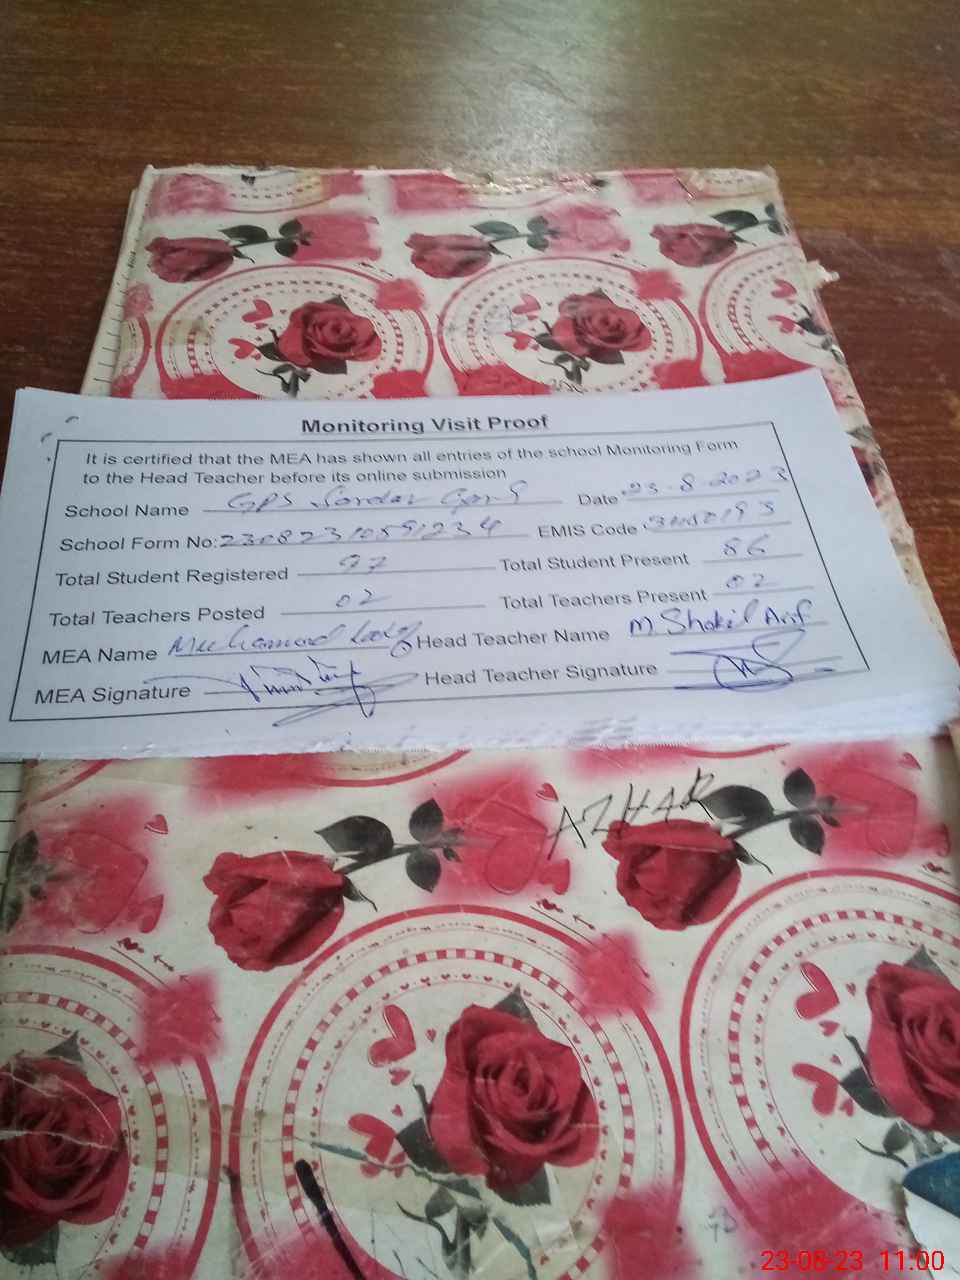 Monitoring Visit Proof
It is certified that the MEA has shown all entries of the school Monitoring Form
to the Head Teacher before its online submission
School Name GPS Sardar Garh Date 23-8-2023
School Form No: 23082310591234 EMIS Code
Total Student Registered 97 Total Student Present 86
Total Teachers Posted 02 Total Teachers Present 02
MEA Name Muhammad Head Teacher Name M Shakil Arif
MEA Signature Head Teacher Signature
AZHAR
23-08-23 11:00